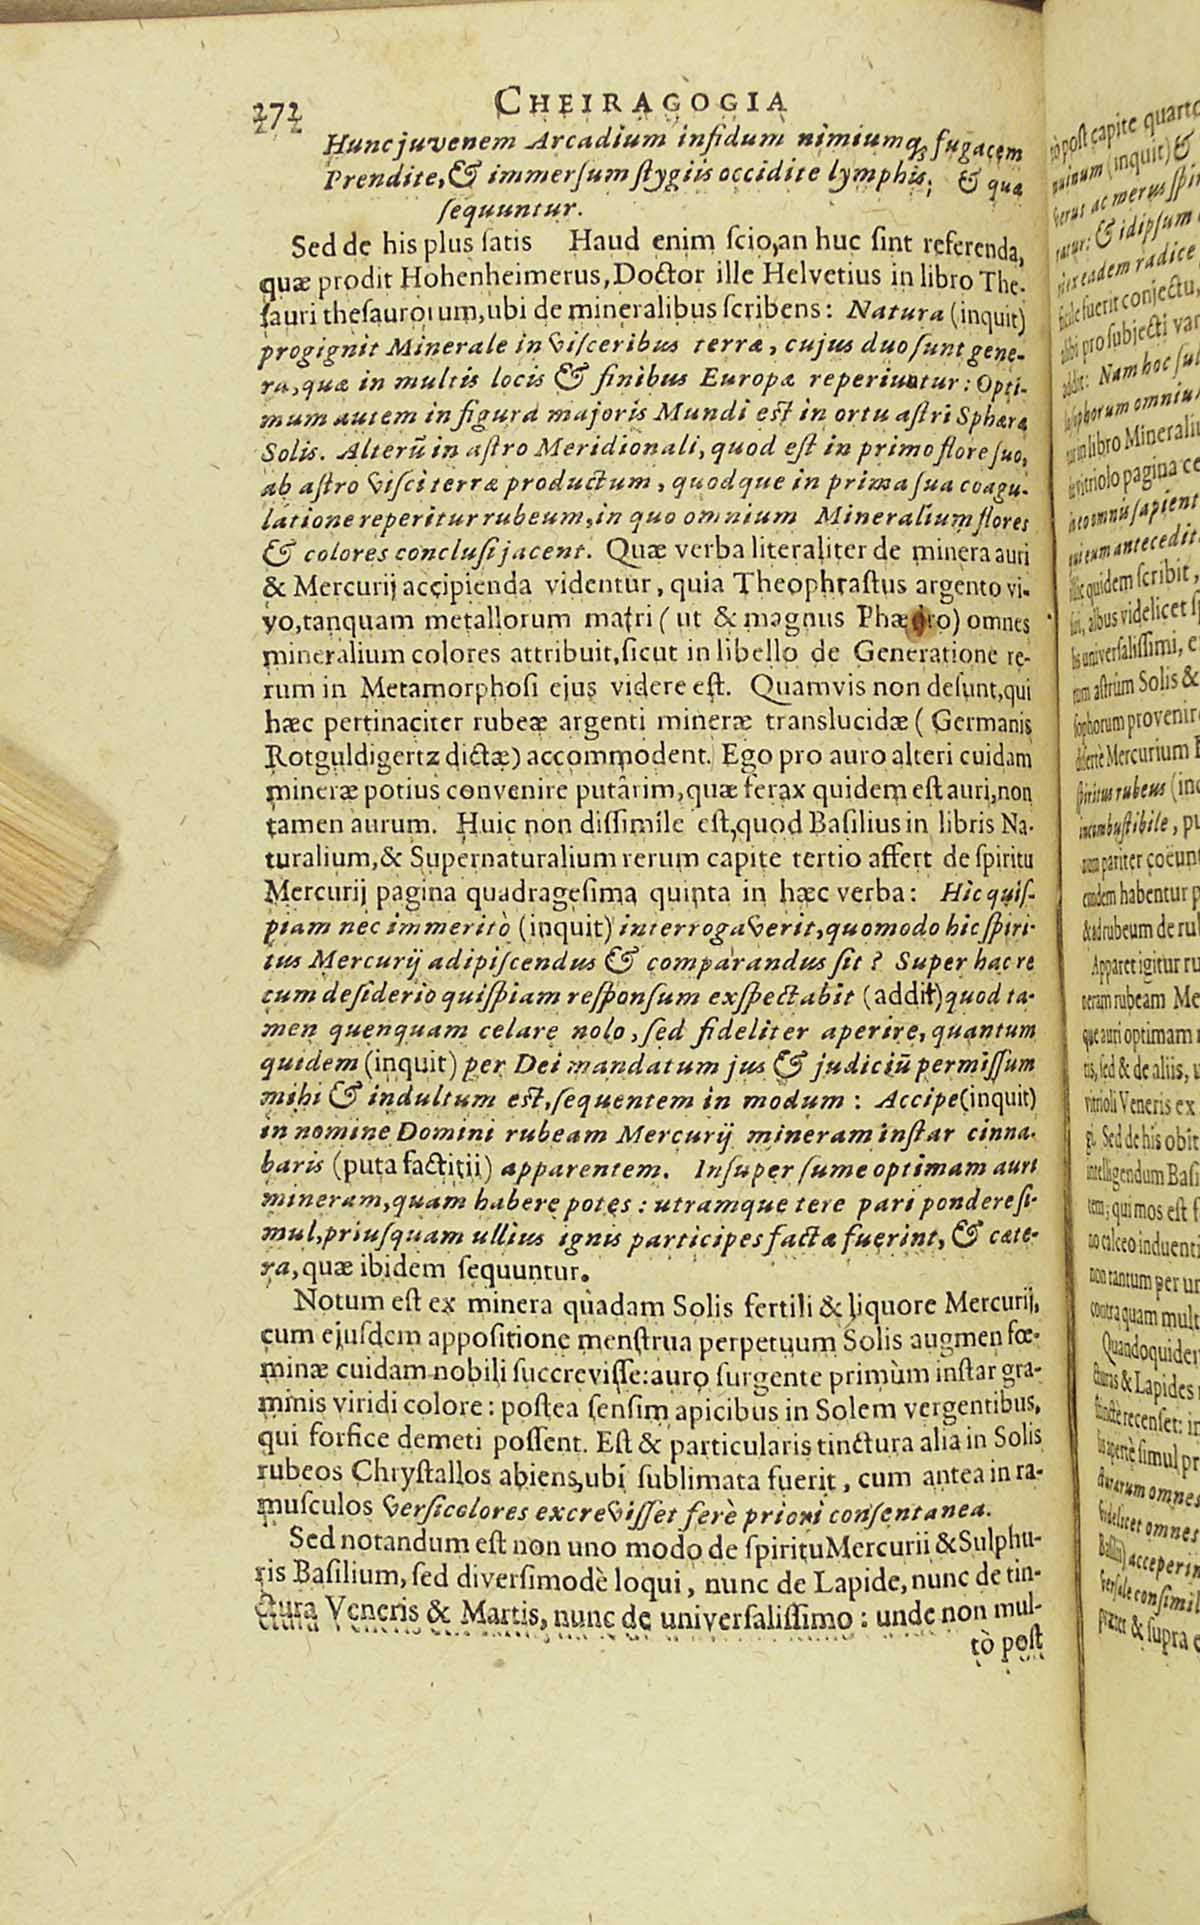 272 CHEIRAGOGIA
Hunc juvenem Arcadium infidum nimiumq; fugacem
Prendite, & immersum stygiis occidite lymphis; & quæ
sequuntur.
Sed de his plus satis Haud enim scio, an huc sint referenda,
quæ prodit Hohenheimerus, Doctor ille Helvetius in libro The-
sauri thesaurorum, ubi de mineralibus scribens: Natura (inquit)
progignit Minerale in visceribus terræ, cujus duo sunt gene-
ra, quæ in multis locis & finibus Europæ reperiuntur: Opti-
mum autem in figura majoris Mundi est in ortu astri Sphæræ
Solis. Alterū in astro Meridionali, quod est in primo flore suo,
ab astro visci terræ productum, quodque in prima sua coagu-
latione reperitur rubeum, in quo omnium Mineralium flores
& colores conclusi jacent. Quæ verba literaliter de minera auri
& Mercurij accipienda videntur, quia Theophrastus argento vi-
vo, tanquam metallorum matri (ut & magnus Phædro) omnes
mineralium colores attribuit, sicut in libello de Generatione re-
rum in Metamorphosi ejus videre est. Quamvis non desunt, qui
hæc pertinaciter rubeæ argenti mineræ translucidæ (Germanis
Rotguldigertz dictæ) accommodent. Ego pro auro alteri cuidam
mineræ potius convenire putârim, quæ ferax quidem est auri, non
tamen aurum. Huic non dissimile est, quod Basilius in libris Na-
turalium, & Supernaturalium rerum capite tertio affert de spiritu
Mercurij pagina quadragesima quinta in hæc verba: Hîc quis-
piam nec immeritò (inquit) interrogaverit, quomodo hic spiri-
tus Mercurij adipiscendus & comparandus sit? Super hac re
cum desiderio quispiam responsum exspectabit (addit) quod ta-
men quenquam celare nolo, sed fideliter aperire, quantum
quidem (inquit) per Dei mandatum jus & judiciū permissum
mihi & indultum est, sequentem in modum: Accipe (inquit)
in nomine Domini rubeam Mercurij mineram instar cinna-
baris (puta factitii) apparentem. Insuper sume optimam auri
mineram, quam habere potes: utramque tere pari pondere si-
mul, priusquam ullius ignis participes factæ fuerint, & cæte-
ra, quæ ibidem sequuntur.
Notum est ex minera quadam Solis fertili & liquore Mercurij,
cum ejusdem appositione menstrua perpetuum Solis augmen fœ-
minæ cuidam nobili succrevisse: auro surgente primùm instar gra-
minis viridi colore: postea sensim apicibus in Solem vergentibus,
qui forfice demeti possent. Est & particularis tinctura alia in Solis
rubeos Chrystallos abiens, ubi sublimata fuerit, cum antea in ra-
musculos versicolores excrevisset ferè priori consentanea.
Sed notandum est non uno modo de spiritu Mercurii & Sulphu-
ris Basilium, sed diversimodè loqui, nunc de Lapide, nunc de tin-
ctura Veneris & Martis, nunc de universalissimo: unde non mul-
tò post
tò post capite quarto
(inquit) &
verus ac merus spi
& idipsum
eadem radice
fuerit conjectu,
pro subjecti var
addit: Nam hoc sul
omnium
in libro Minerali
vitriolo pagina ce
sapient
eum antecedit
quidem scribit,
albus videlicet sp
universalissimi, e
astrum Solis &
sophorum provenire
Mercurium
spiritus rubeus (in
incombustibile, pu
pariter coeunt
eundem habentur p
& ad rubeum de ru
Apparet igitur ru
neram rubeam Me
que auri optimam
tis, sed & de aliis, u
vitrioli Veneris ex
gi. Sed de his obit
intelligendum Basi
tem; qui mos est f
no calceo induenti
non tantum per un
contra quam mult
Quandoquiden
cturas & Lapides
recenset: in
apertè simul pr
omnes
videlicet omnes
acceperin
consimil
& supra